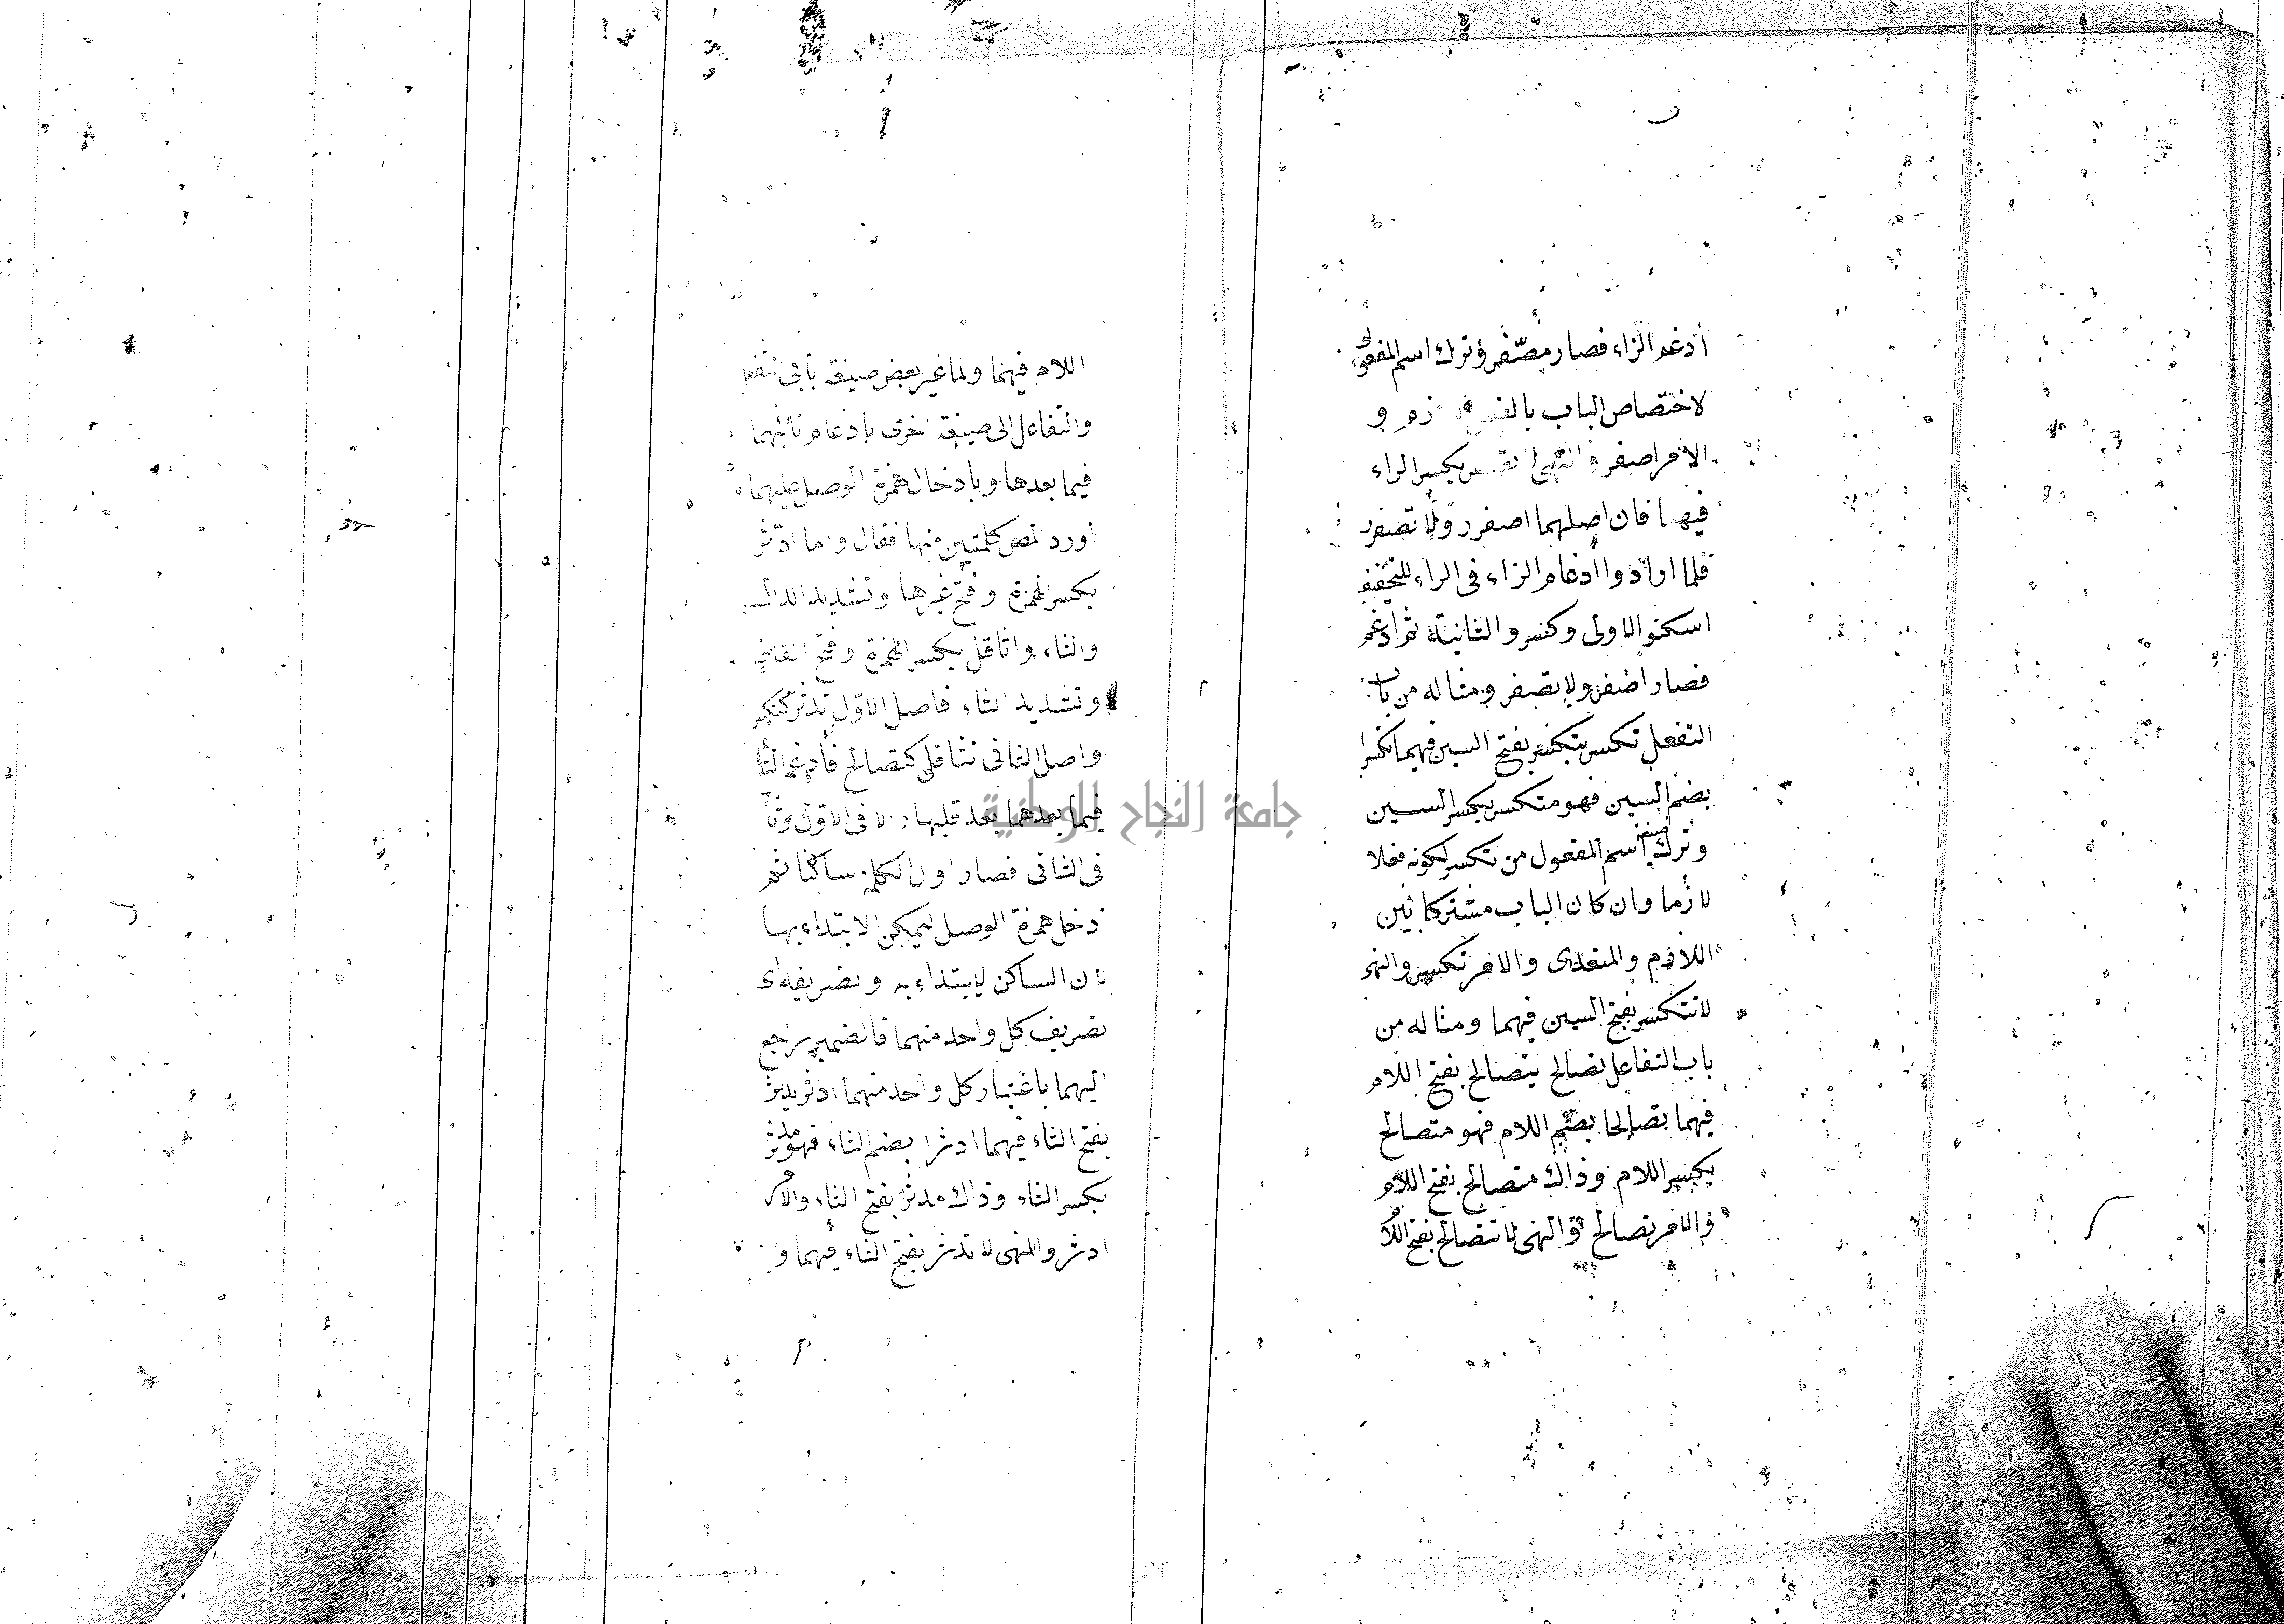 أدغم الراء فصار مصفر وترك اسم المفعول
لاختصاص الباب بالفعل و
الامر اصفر والنهى لا تصفر بكسر الراء
فيهما فان اصلهما اصفرر ولا تصفرر
فلما ارادوا أدغام الراء فى الراء للتخفيف
اسكنوا الاولى وكسروا الثانية ثم ادغم
فصار اصفر ولا تصفر ومثاله من باب
التفعل تكسر يتكسر بفتح السين فيهما تكسرا
بضم السين فهو متكسر بكسر السين
وترك صيغة اسم المفعول من تكسر لكونه فعلا
لازما وان كان الباب مشتركا بين
اللازم والمتعدى والامر تكسر والنهى
لا تتكسر بفتح السين فيهما ومثاله من
باب التفاعل تصالح يتصالح بفتح اللام
فيهما تصالحا بضم اللام فهو متصالح
بكسر اللام وذاك متصالح بفتح اللام
والامر تصالح والنهى لا تتصالح بفتح اللا
اللام فيهما ولما غير بعض صيغة بابى تفعل
والتفاعل الى صيغة اخرى بادغام تائهما
فيما بعدها وبادخال همزة الوصل عليهما
اورد كلمتين منها فقال واما ادّثر
بكسر الهمزة وفتح غيرها وتشديد الدال
والثاء واثاقل بكسر الهمزة وفتح القاف
وتشديد الثاء فاصل الاول تدثر كتكسر
واصل الثانى تثاقل كتصالح فأدغم التا
فيما بعدهما بعد قلبها دالا فى الاول وثا
فى الثانى فصار اول الكلمة ساكنا ثم
دخل همزة الوصل ليمكن الابتداء بها
لان الساكن لا يبتداء به وتصريفه اى
تصريف كل واحد منهما فالضمير راجع
اليهما باعتبار كل واحد منهما ادثر يدثر
بفتح الثاء فيهما ادثرا بضم الثاء فهو مدثر
بكسر الثاء وذاك مدثر بفتح الثاء والامر
ادثر والنهى لا تدثر بفتح الثاء فيهما و
جامعة النجاح الوطنية